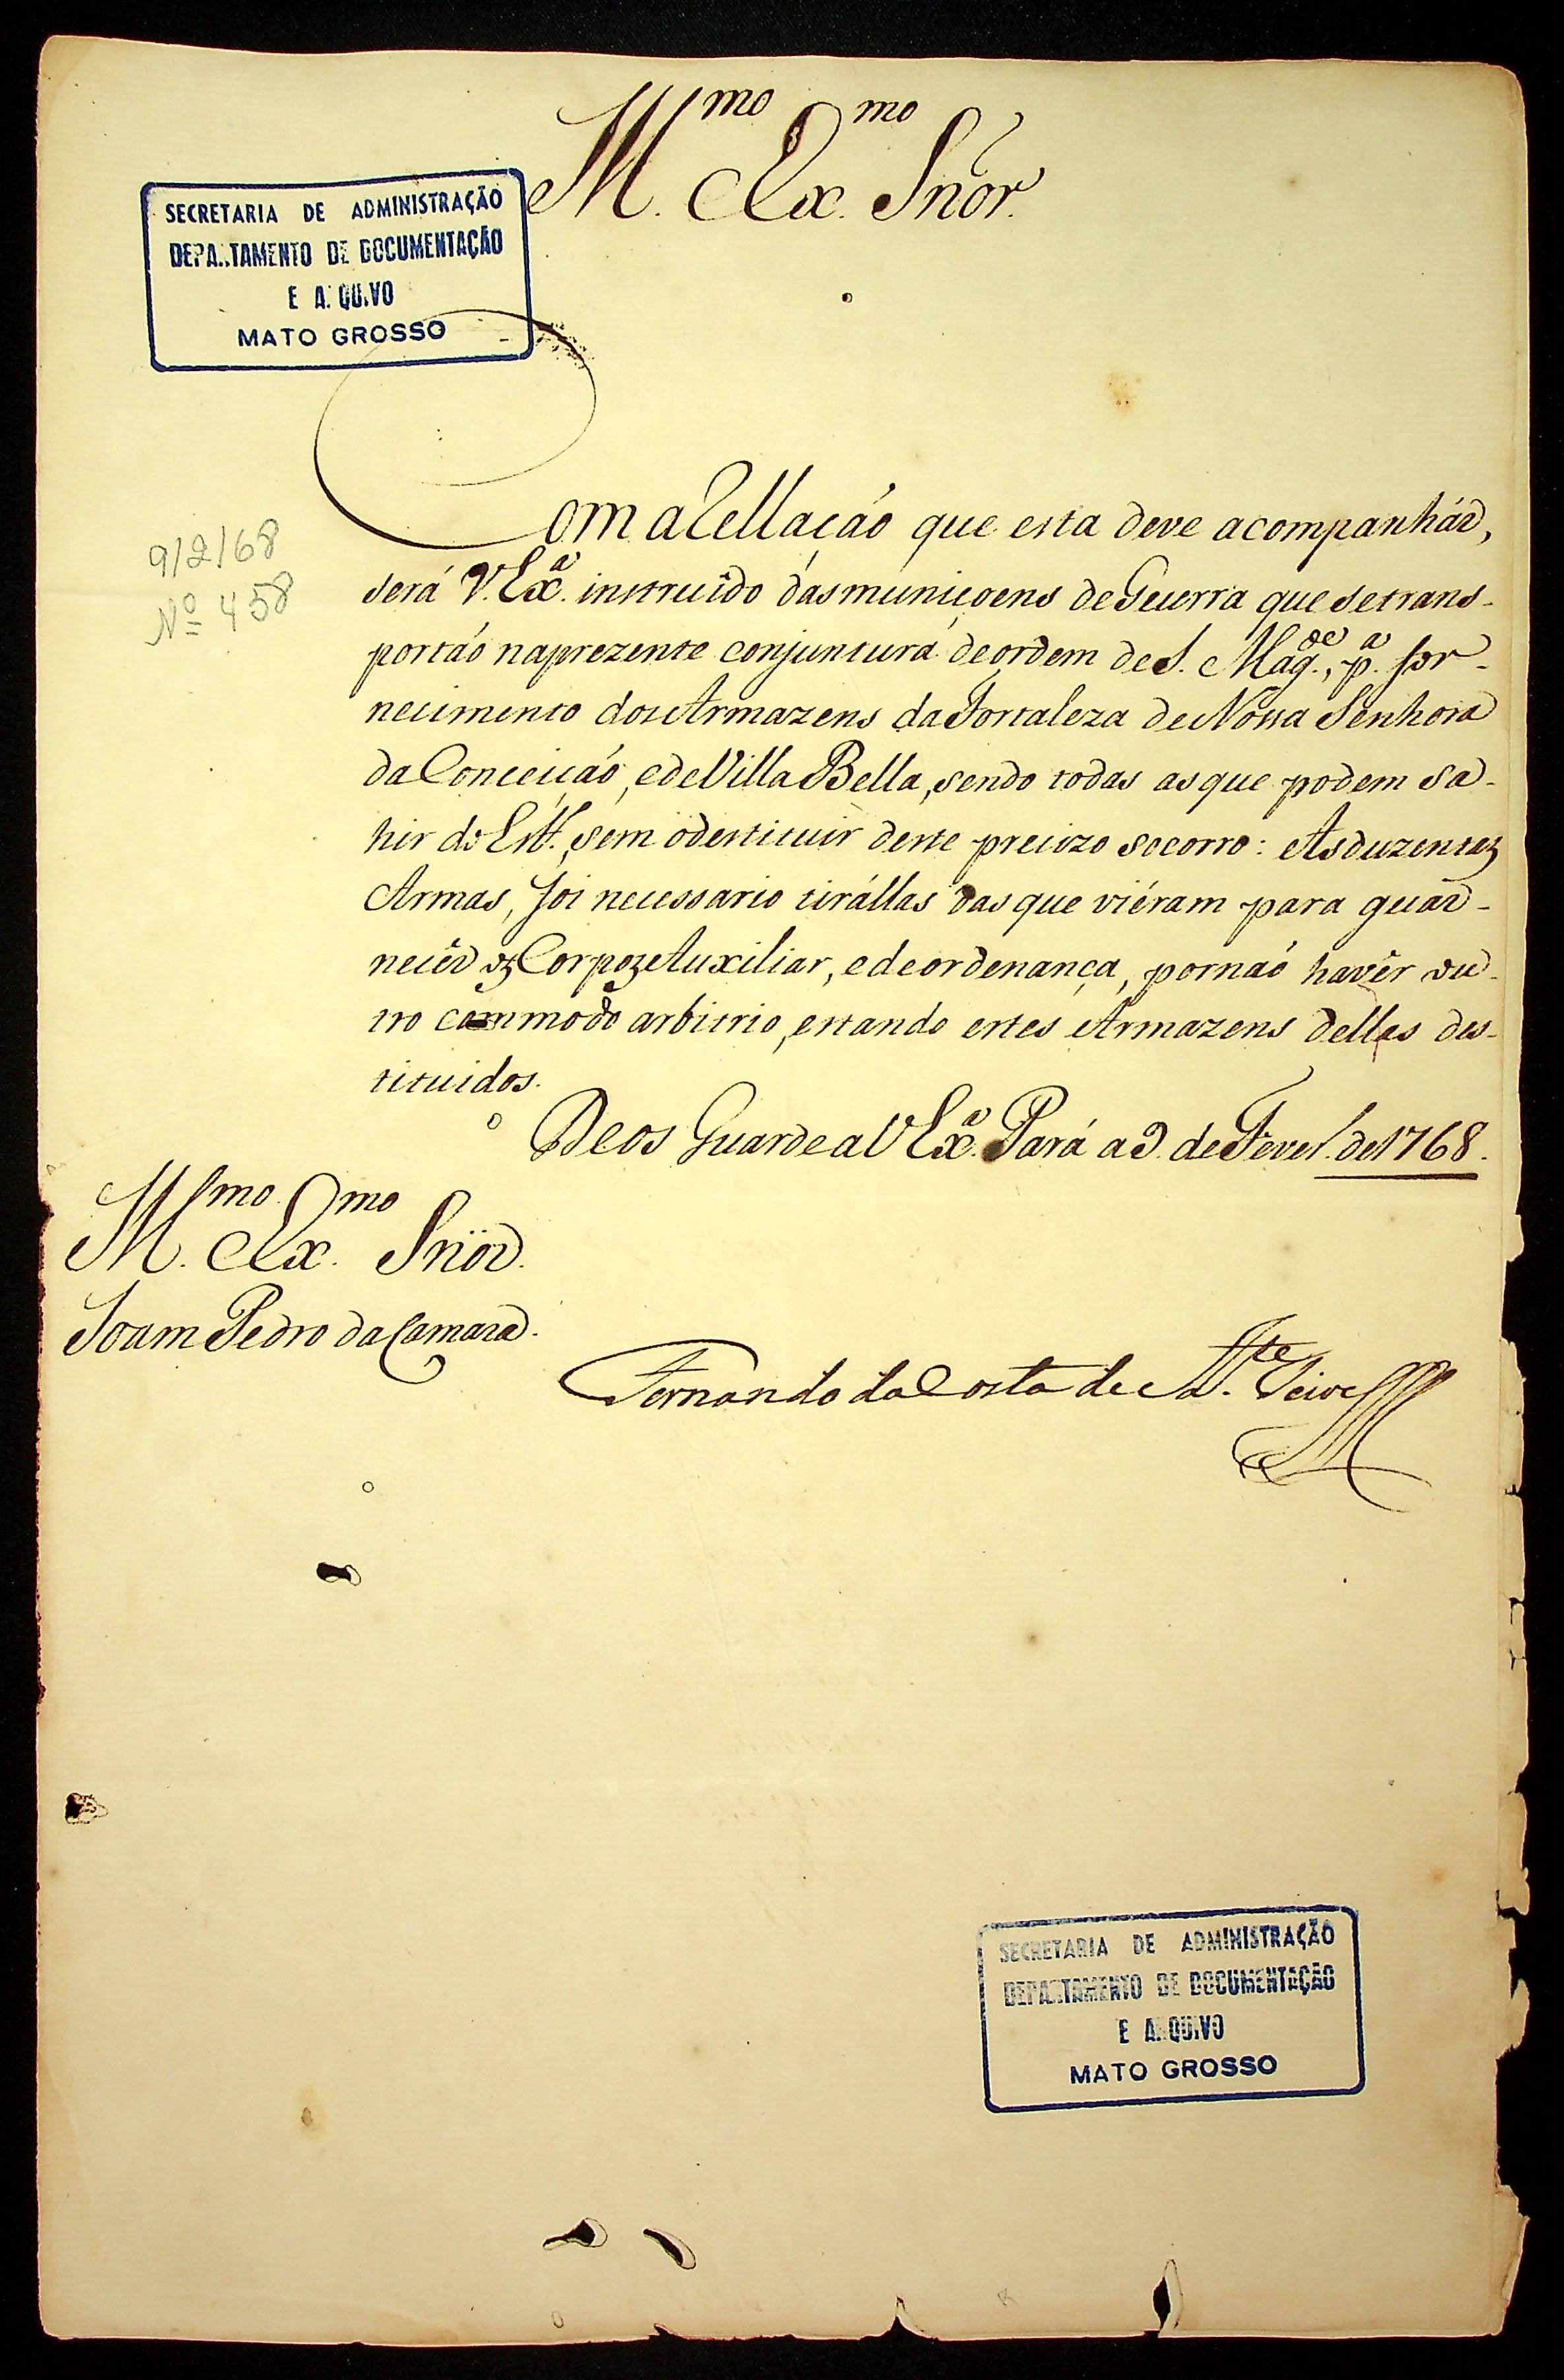 Ill.mo Ex.mo Snõr.
SECRETARIA DE ADMINISTRAÇÃO
DEPARTAMENTO DE DOCUMENTAÇÃO
E ARQUIVO
MATO GROSSO
9/2/68
Nº 458
Com a Rellaçáó que esta deve acompanhár,
será V. Exª. instruîdo dasmuniçoens deGuerra que setrans-
portáó naprezente conjunturá deordem deS. Mag.de, p.ª for-
necimento dosArmazens daFortaleza deNossa Senhora
daConceiçáó, edeVilla Bella, sendo todas asque podem sa-
hir do Est.º, sem odestituir deste preciozo socorro: Asduzentaz
Armas, foi necessario tirállas das que viéram para guar-
necêr oz CorpozAuxiliar, edeordenança, pornaó havêr ou-
tro commodo arbitrio, estando estes Armazens dellas des-
tituidos.
Deos Guarde a V Exª. Pará a 9 de Fever.º de1768.
Ill.mo Ex.mo Snõr.
Joam Pedro da Camara.
Fernando da Costa de At.te Teive
SECRETARIA DE ADMINISTRAÇÃO
DEPARTAMENTO DE DOCUMENTAÇÃO
E ARQUIVO
MATO GROSSO